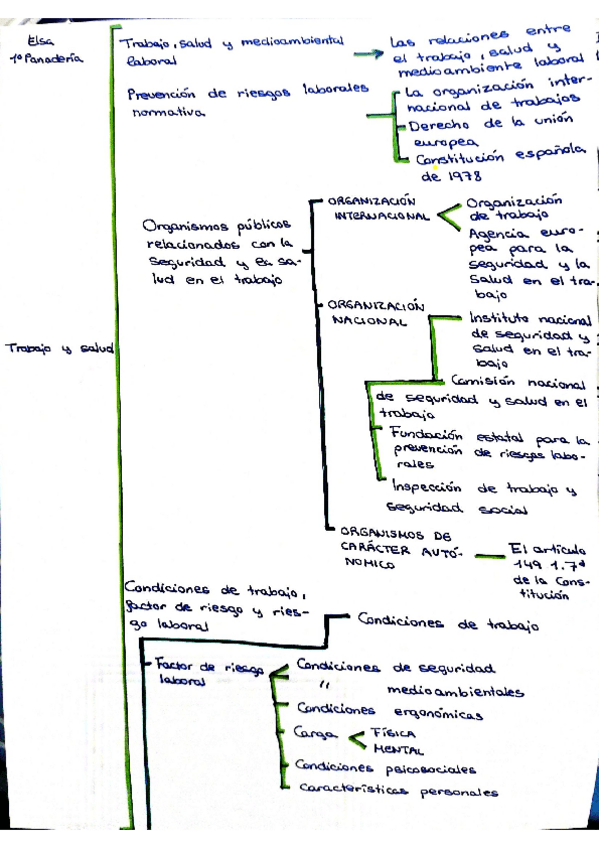 Elsa
1º Panadería
Trabajo y salud
Trabajo, salud y medioambiental
laboral
Las relaciones entre
el trabajo, salud y
medioambiente laboral
Prevención de riesgos laborales
normativa
La organización inter-
nacional de trabajos
Derecho de la unión
europea
Constitución española
de 1978
Organismos públicos
relacionados con la
seguridad y en sa-
lud en el trabajo
ORGANIZACIÓN
INTERNACIONAL
Organización
de trabajo
Agencia euro-
pea para la
seguridad y la
salud en el tra-
bajo
ORGANIZACIÓN
NACIONAL
Instituto nacional
de seguridad y
salud en el tra-
bajo
Comisión nacional
de seguridad y salud en el
trabajo
Fundación estatal para la
prevención de riesgos labo-
rales
Inspección de trabajo y
seguridad social
ORGANISMOS DE
CARÁCTER AUTÓ-
NOMICO
El artículo
149 1.7ª
de la Cons-
titución
Condiciones de trabajo,
factor de riesgo y ries-
go laboral
Condiciones de trabajo
Factor de riesgo
laboral
Condiciones de seguridad
" medioambientales
Condiciones ergonómicas
Carga
FÍSICA
MENTAL
Condiciones psicosociales
características personales